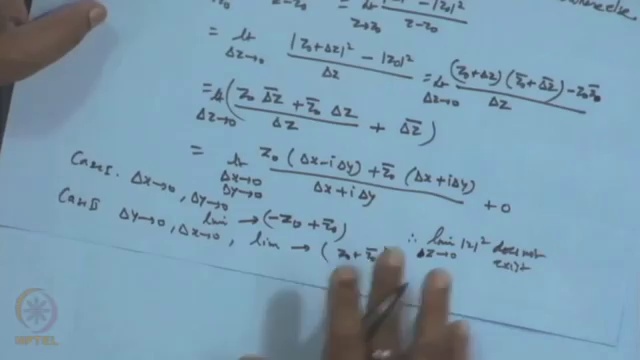 = lt Δz→0 |z₀+Δz|² − |z₀|² / Δz = lt Δz→0 (z₀+Δz)(z̄₀+Δz̄) − z₀z̄₀ / Δz
= lt Δz→0 ( z₀ Δz̄ + z̄₀ Δz / Δz + Δz̄ )
= lt Δx→0 Δy→0 z₀ (Δx−iΔy) + z̄₀ (Δx+iΔy) / Δx+iΔy + 0
Case I. Δx→0, Δy→0 lim → (−z₀ + z̄₀)
Case II Δy→0, Δx→0, lim → (z₀+z̄₀) ∴ lim Δz→0 |z|² does not exist
NPTEL